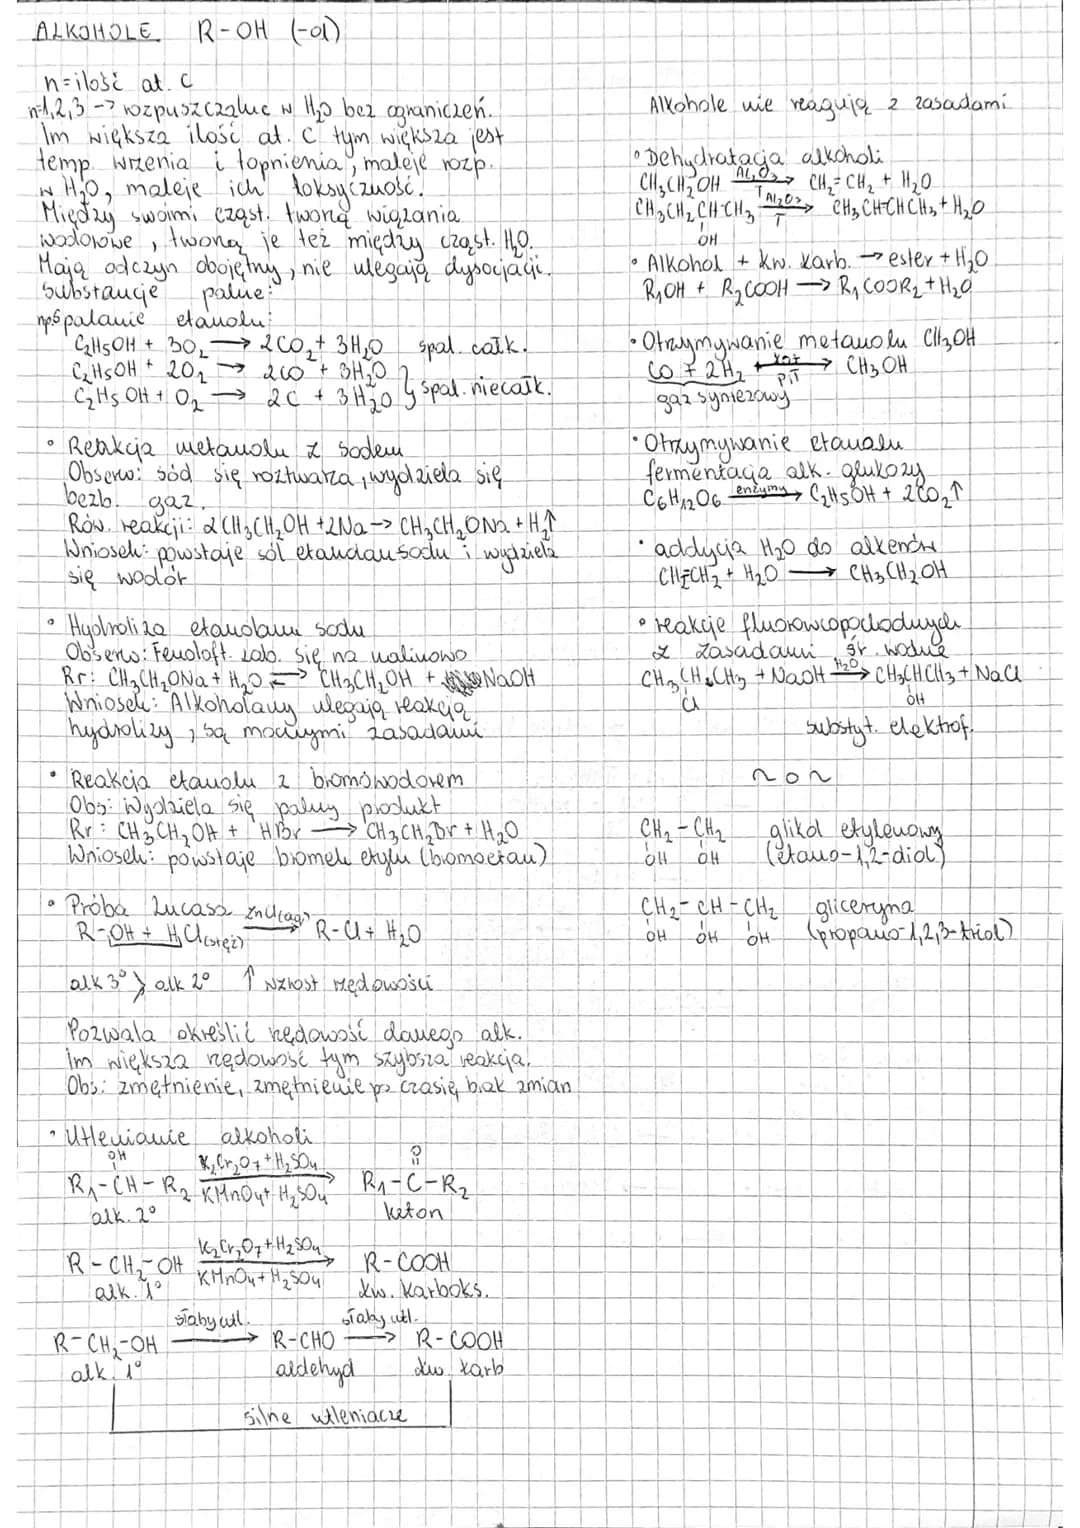 ALKOHOLE R-OH (-ol)
n=ilość at. C
n=1,2,3 -> rozpuszczalne w H₂O bez ograniczeń.
Im większa ilość at. C tym większa jest
temp. wrzenia i topnienia, maleje rozp.
w H₂O, maleje ich toksyczność.
Między swoimi cząst. tworzą wiązania
wodorowe, tworzą je też między cząst. H₂O.
Mają odczyn obojętny, nie ulegają dysocjacji.
Substancje palne:
np. spalanie etanolu:
C₂H₅OH + 3O₂ → 2CO₂ + 3H₂O spal. całk.
C₂H₅OH + 2O₂ → 2CO + 3H₂O
C₂H₅OH + O₂ → 2C + 3H₂O } spal. niecałk.
• Reakcja metanolu z sodem
Obserw: sód się roztwarza, wydziela się
bezb. gaz.
Rów. reakcji: 2CH₃CH₂OH + 2Na -> CH₃CH₂ONa + H₂↑
Wniosek: powstaje sól etanolan sodu i wydziela
się wodór
• Hydroliza etanolanu sodu
Obserw: Fenoloft. zab. się na malinowo
Rr: CH₃CH₂ONa + H₂O ⇌ CH₃CH₂OH + NaOH
Wniosek: Alkoholany ulegają reakcją
hydrolizy, są mocnymi zasadami
• Reakcja etanolu z bromowodorem
Obs: Wydziela się palny produkt
Rr: CH₃CH₂OH + HBr → CH₃CH₂Br + H₂O
Wniosek: powstaje bromek etylu (bromoetan)
• Próba Lucasa
R-OH + HCl(stęż) ZnCl(aq)→ R-Cl + H₂O
alk 3° > alk 2° ↑ wzrost rzędowości
Pozwala określić rzędowość danego alk.
Im większa rzędowość tym szybsza reakcja.
Obs: zmętnienie, zmętnienie po czasie, brak zmian
• Utlenianie alkoholi
OH K₂Cr₂O₇+H₂SO₄ O
R₁-CH-R₂ → R₁-C-R₂
KMnO₄+H₂SO₄
alk. 2° keton
K₂Cr₂O₇+H₂SO₄
R-CH₂-OH → R-COOH
KMnO₄+H₂SO₄
alk. 1° kw. karboks.
słaby utl. słaby utl.
R-CH₂-OH → R-CHO → R-COOH
alk. 1° aldehyd kw. karb
silne utleniacze
Alkohole nie reagują z zasadami
• Dehydratacja alkoholi
CH₃CH₂OH Al₂O₃ T→ CH₂=CH₂ + H₂O
CH₃CH₂CH-CH₃ Al₂O₃ T→ CH₃CH=CHCH₃ + H₂O
OH
• Alkohol + kw. karb. → ester + H₂O
R₁OH + R₂COOH → R₁COOR₂ + H₂O
• Otrzymywanie metanolu CH₃OH
CO + 2H₂ kat p i T→ CH₃OH
gaz syntezowy
• Otrzymywanie etanolu
fermentacja alk. glukozy
C₆H₁₂O₆ enzymy→ C₂H₅OH + 2CO₂↑
• addycja H₂O do alkenów
CH₂=CH₂ + H₂O → CH₃CH₂OH
• reakcje fluorowcopochodnych
z zasadami śr. wodne
CH₃CH₂CH₃ + NaOH H₂O→ CH₃CHCH₃ + NaCl
Cl OH
substyt. elektrof.
~ o ~
CH₂-CH₂ glikol etylenowy
OH OH (etano-1,2-diol)
CH₂-CH-CH₂ gliceryna
OH OH OH (propano-1,2,3-triol)